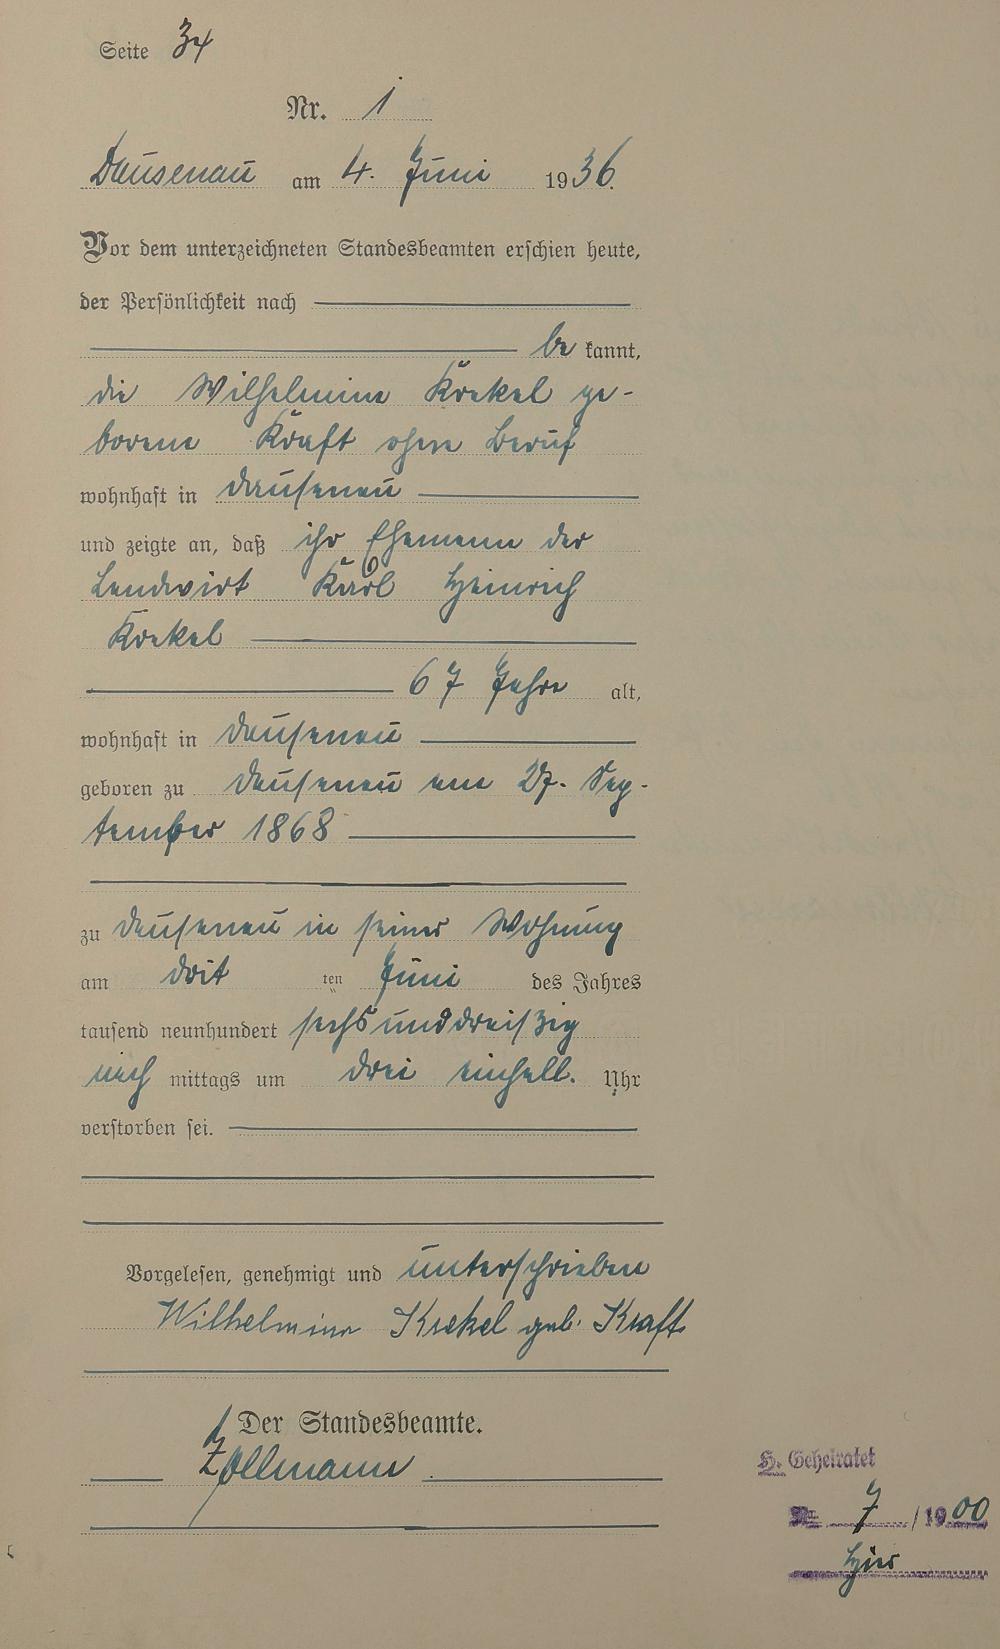 Seite 34
Nr. 1
Dausenau am 4. Juni 1936.
Vor dem unterzeichneten Standesbeamten erschien heute,
der Persönlichkeit nach
be kannt,
die Wilhelmine Krekel ge-
borene Kraft ohne Beruf
wohnhaft in Dausenau
und zeigte an, daß ihr Ehemann der
Landwirt Karl Heinrich
Krekel
67 Jahre alt,
wohnhaft in Dausenau
geboren zu Dausenau am 27. Sep-
tember 1868
zu Dausenau in seiner Wohnung
am drit ten Juni des Jahres
tausend neunhundert sechsunddreißig
nach mittags um drei einhalb. Uhr
verstorben sei.
Vorgelesen, genehmigt und unterschrieben
Wilhelmine Krekel geb. Kraft
Der Standesbeamte.
Zollmann
H. Geheiratet
Nr. 7 / 1900
hier